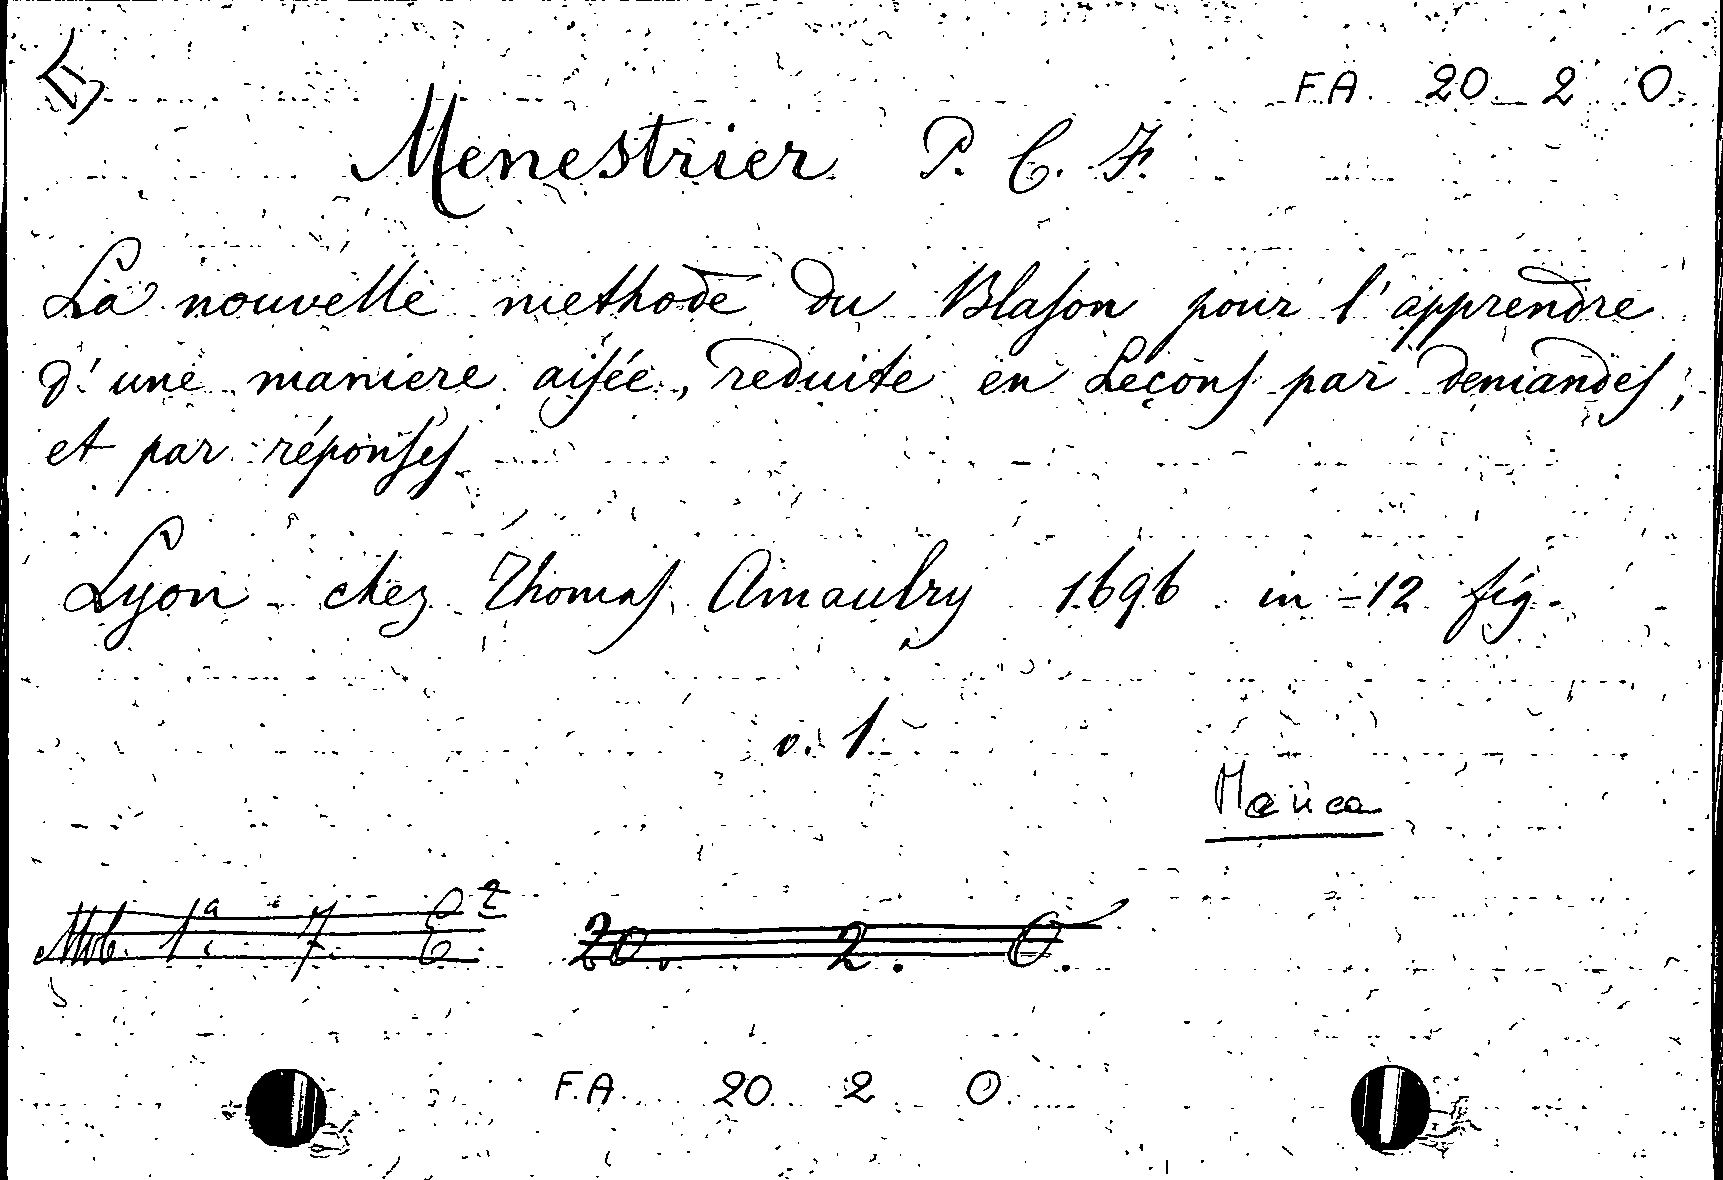 F.A. 20 2 0.
Menestrier P. C. F.
La nouvelle methode du Blason pour l'apprendre
d'une maniere aisée, reduite en Leçons par demandes,
et par réponses
Lyon chez Thomas Amaulry 1696 in-12 fig.
v. 1
Manca
20. 2. 0.
F.A. 20 2 0.